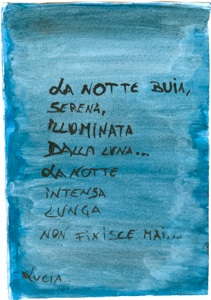 LA NOTTE BUIA,
SERENA,
ILLUMINATA
DALLA LUNA...
LA NOTTE
INTENSA
LUNGA
NON FINISCE MAI....
LUCIA